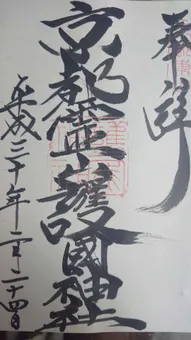 奉拝
京都霊護國神社
平成三十年二月二十四日